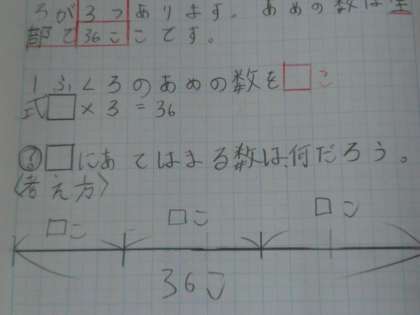 ろが3つあります。あめの数は全
部で36こです。
1ふくろのあめの数を□こ
式□×3=36
□にあてはまる数は、何だろう。
〈考え方〉
□こ □こ □こ
36こ